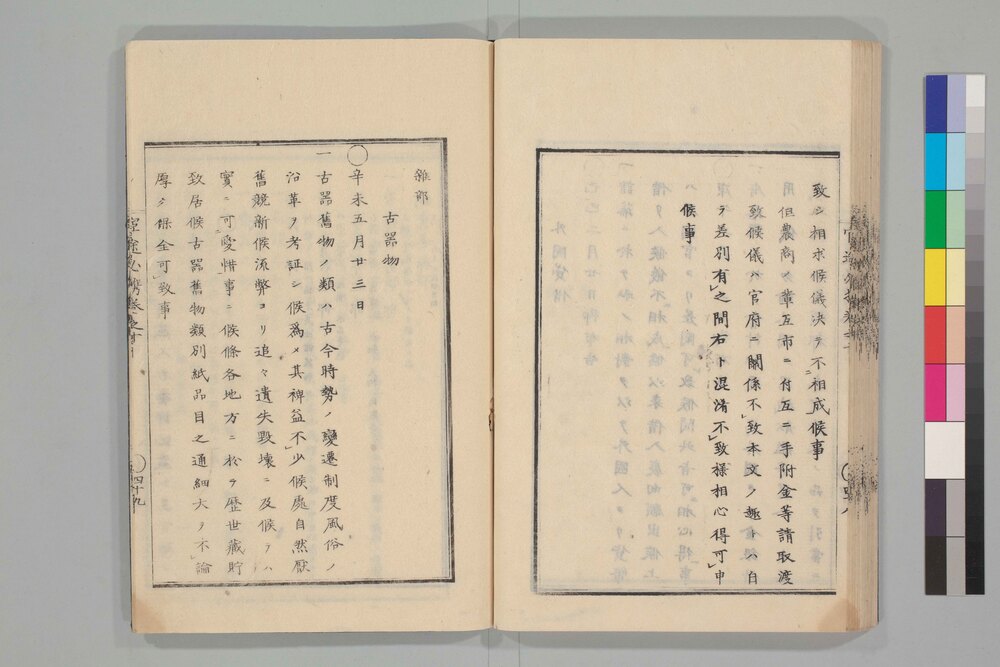 致シ相求候儀決テ不相成候事
用但農商ノ輩互市ニ付互ニ手附金等請取渡
致候儀ハ官府ニ關係不致本文ノ趣トハ自
ラ差別有之間右ト混淆不致様相心得可申
候事
雜部
古器物
辛未五月廿三日
一古器舊物ノ類ハ古今時勢ノ變遷制度風俗ノ
沿革ヲ考証シ候爲メ其裨益不少候處自然厭
舊競新候流弊ヨリ追々遺失毀壞ニ及候テハ
實ニ可愛惜事ニ候條各地方ニ於テ歴世藏貯
致居候古器舊物類別紙品目之通細大ヲ不論
厚ク保全可致事
四十九